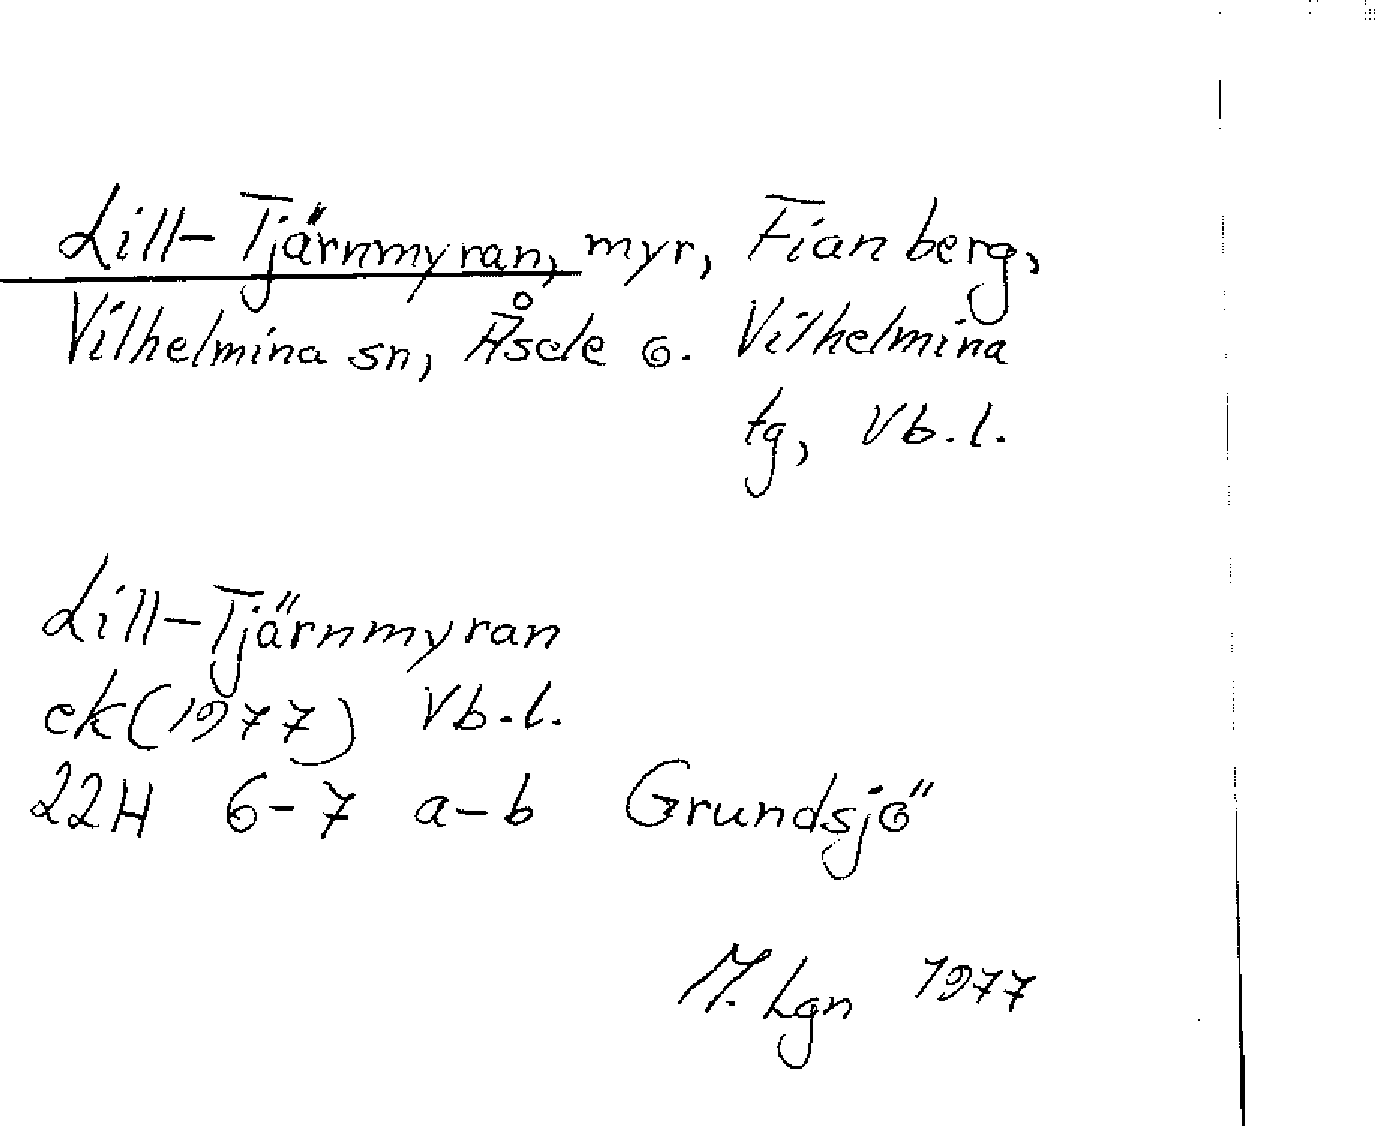 Lill-Tjärnmyran, myr, Fianberg,
Vilhelmina sn, Åsele o. Vilhelmina
tg, Vb.l.
Lill-Tjärnmyran
ek (1977) Vb.l.
22H 6-7 a-b Grundsjö
M. Lgn 1977